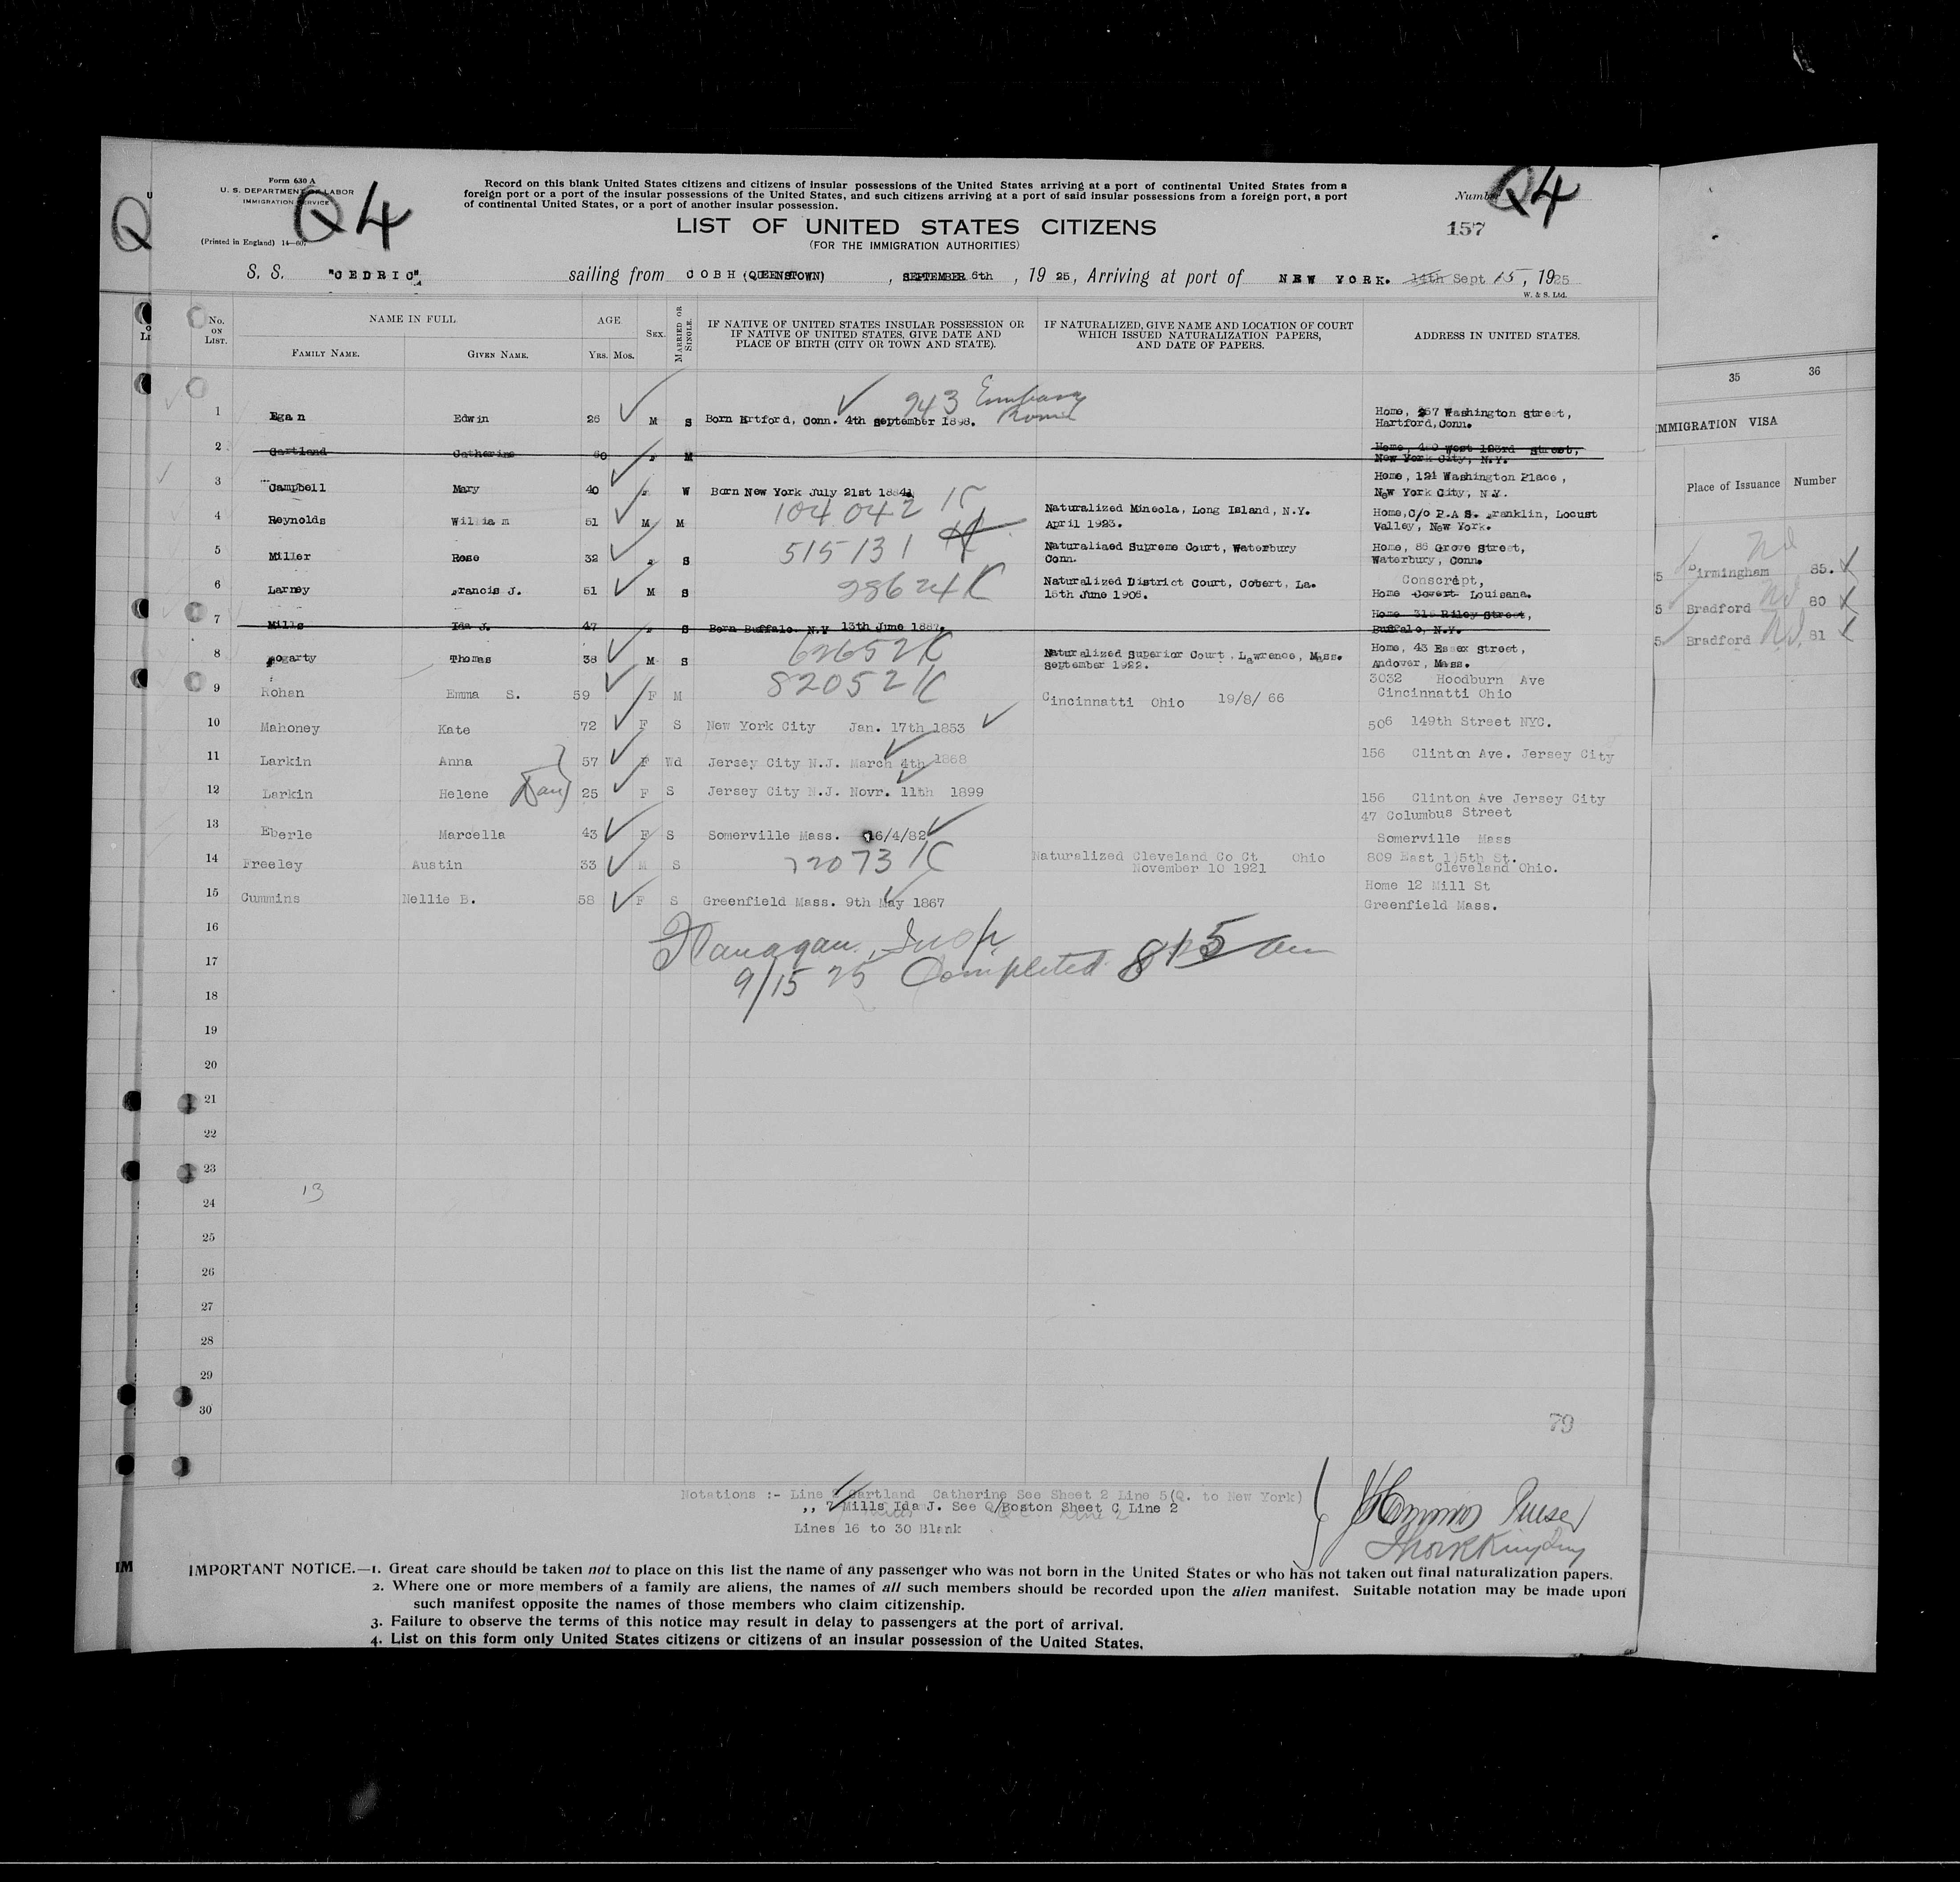 Form 630 A
U. S. DEPARTMENT OF LABOR
IMMIGRATION SERVICE
(Printed in England)
Q4
Record on this blank United States citizens and citizens of insular possessions of the United States arriving at a port of continental United States from a
foreign port or a port of the insular possessions of the United States, and such citizens arriving at a port of said insular possessions from a foreign port, a port
of continental United States, or a port of another insular possession.
LIST OF UNITED STATES CITIZENS
(FOR THE IMMIGRATION AUTHORITIES)
Number Q4
157
S. S. "CEDRIC" sailing from COBH (QUEENSTOWN), SEPTEMBER 6th, 19 25, Arriving at port of NEW YORK. 14th Sept 15, 1925
W. & S. Ltd.
No. ON LIST. NAME IN FULL FAMILY NAME. GIVEN NAME. AGE YRS. MOS. SEX. MARRIED OR SINGLE.
IF NATIVE OF UNITED STATES INSULAR POSSESSION OR
IF NATIVE OF UNITED STATES, GIVE DATE AND
PLACE OF BIRTH (CITY OR TOWN AND STATE).
IF NATURALIZED, GIVE NAME AND LOCATION OF COURT
WHICH ISSUED NATURALIZATION PAPERS,
AND DATE OF PAPERS.
ADDRESS IN UNITED STATES.
943 Embassy
Rome
1 Egan Edwin 26 M S Born Hrtford, Conn. 4th september 1898. Home, 257 Washington street,
Hartford, Conn.
2 Gartland Catherine 60 M Home, 420 West 123rd street,
New York City, N.Y.
3 Campbell Mary 40 W Born New York July 21st 1884. Home, 121 Washington Place,
New York City, N.Y.
104 042 K
4 Reynolds William 51 M M Naturalized Mineola, Long Island, N.Y.
April 1923.
Home, C/o P.A S. Franklin, Locust
Valley, New York.
515131 K
5 Miller Rose 32 S Naturaliaed Supreme Court, Waterbury
Conn.
Home, 86 Grove Street,
Waterbury, Conn.
28624 K
6 Larney Francis J. 51 M S Naturalized District Court, Cobert, La.
15th June 1906.
Conscript,
Home Covert Louisana.
7 Mills Ida J. 47 S Born Buffalo. N.Y 13th June 1887. Home 316 Riley Street,
Buffalo, N.Y.
62652 K
8 Fogarty Thomas 38 M S Naturalized Superior Court, Lawrence, Mass.
september 1922.
Home, 43 Essex street,
Andover, Mass.
82052 K
9 Rohan Emma S. 59 F M Cincinnatti Ohio 19/8/ 66
3032 Hoodburn Ave
Cincinnatti Ohio
10 Mahoney Kate 72 F S New York City Jan. 17th 1853 506 149th Street NYC.
11 Larkin Anna 57 F Wd Jersey City N.J. March 4th 1868 156 Clinton Ave. Jersey City
12 Larkin Helene Dau 25 F S Jersey City N.J. Novr. 11th 1899 156 Clinton Ave Jersey City
13 Eberle Marcella 43 F S Somerville Mass. 16/4/82 47 Columbus Street
Somerville Mass
72073 K
14 Freeley Austin 33 M S Naturalized Cleveland Co Ct Ohio
November 10 1921
809 East 115th St.
Cleveland Ohio.
15 Cummins Nellie B. 58 F S Greenfield Mass. 9th May 1867 Home 12 Mill St
Greenfield Mass.
16
Flanagan, Insp
17
9/15 25 Completed 815 am
18
19
20
21
22
23
24
13
25
26
27
28
29
30
79
Notations :- Line 2 Gartland Catherine See Sheet 2 Line 5(Q. to New York)
,, 7 Mills Ida J. See Q/Boston Sheet C Line 2
Lines 16 to 30 Blank
Purser
IMPORTANT NOTICE.—1. Great care should be taken not to place on this list the name of any passenger who was not born in the United States or who has not taken out final naturalization papers.
2. Where one or more members of a family are aliens, the names of all such members should be recorded upon the alien manifest. Suitable notation may be made upon
such manifest opposite the names of those members who claim citizenship.
3. Failure to observe the terms of this notice may result in delay to passengers at the port of arrival.
4. List on this form only United States citizens or citizens of an insular possession of the United States.
35 36
IMMIGRATION VISA
Place of Issuance Number
5 Birmingham 85.
5 Bradford 80
5 Bradford 81
Q
IM